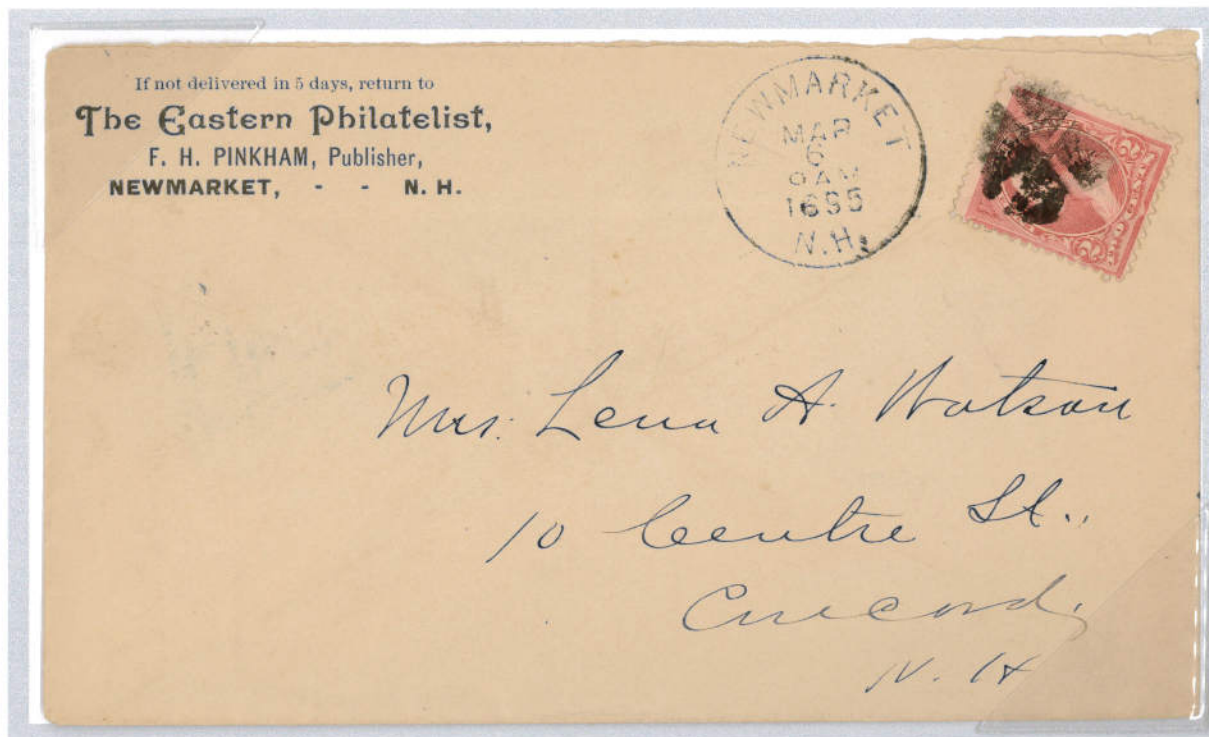 If not delivered in 5 days, return to
The Eastern Philatelist,
F. H. PINKHAM, Publisher,
NEWMARKET, - - N. H.
NEWMARKET
MAR
6
9 AM
1895
N.H.
2 2
TWO CENTS
Mrs. Lena A. Watson
10 Centre St.,
Concord,
N. H